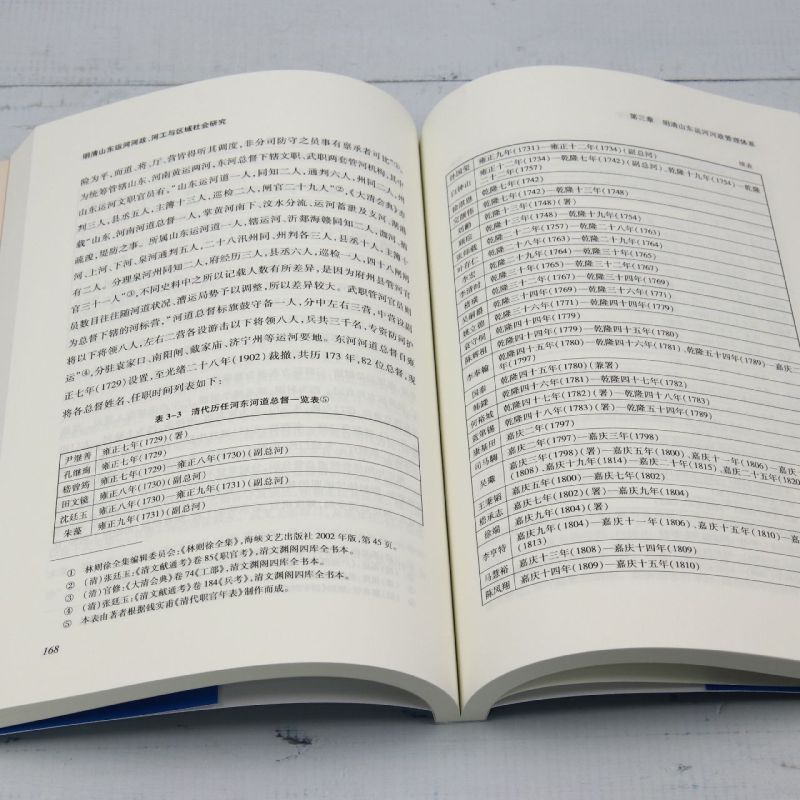 明清山东运河河政、河工与区域社会研究
险为平,而道、将、厅、营皆得听其调度,非分司防守之员事有禀承者可比”①,
为统筹管辖山东、河南黄运两河,东河总督下辖文职、武职两套管河机构,其中
山东运河文职官员有,“山东运河道一人,同知二人,通判六人,州同二人,州
判三人,县丞五人,主簿十三人,巡检二人,闸官二十九人”②,《大清会典》也
载“山东、河南河道总督一人,掌黄河南下、汶水分流、运河蓄泄及支河、湖港
疏浚,堤防之事。所属山东运河道一人,辖运河、沂郯海赣同知二人,泇河、捕
河、上河、下河、泉河通判五人,二十八汛州同、州判各三人,县丞十人,主簿十
有二人。分理泉河州同知二人,府经历三人,县丞六人,巡检一人,四十八闸闸
官三十一人”③,不同史料中之所以记载人数有所差异,是因为府州县管河官
员数目往往随河道状况、漕运局势予以调整,所以差异较大。武职管河官员则
为总督下辖的河标营,“河道总督标旗鼓守备一人,分中左右三营,中营设副
将以下将领八人,左右二营各设游击以下将领八人,兵共三千名,专资防河护
运”④,分驻袁家口、南阳闸、戴家庙、济宁州等运河要地。东河河道总督自雍
正七年(1729)设置,至光绪二十八年(1902)裁撤,共历 173 年,82 位总督,现
将各总督姓名、任职时间列表如下:
表 3-3 清代历任河东河道总督一览表⑤
尹继善 雍正七年(1729)(署)
孔继珣 雍正七年(1729)
嵇曾筠 雍正七年(1729)—雍正八年(1730)(副总河)
田文镜 雍正八年(1730)(副总河)
沈廷玉 雍正八年(1730)—雍正九年(1731)(副总河)
朱藻 雍正九年(1731)(副总河)
① 林则徐全集编辑委员会:《林则徐全集》,海峡文艺出版社 2002 年版,第 45 页。
② (清)张廷玉:《清文献通考》卷 85《职官考》,清文渊阁四库全书本。
③ (清)官修:《大清会典》卷 74《工部》,清文渊阁四库全书本。
④ (清)张廷玉:《清文献通考》卷 184《兵考》,清文渊阁四库全书本。
⑤ 本表由著者根据钱实甫《清代职官年表》制作而成。
168
第三章 明清山东运河河政管理体系
续表
孙国玺 雍正九年(1731)—雍正十二年(1734)(副总河)
白钟山 雍正十二年(1734)—乾隆七年(1742)(副总河)、乾隆十九年(1754)—乾隆
二十二年(1757)
乾隆七年(1742)
完颜伟 乾隆七年(1742)—乾隆十三年(1748)
乾隆十三年(1748)(署)
顾琮 乾隆十三年(1748)—乾隆十九年(1754)
张师载 乾隆二十二年(1757)—乾隆二十八年(1763)
叶存仁 乾隆二十八年(1763)—乾隆二十九年(1764)
李宏 乾隆二十九年(1764)—乾隆三十年(1765)
李清时 乾隆三十年(1765)—乾隆三十二年(1767)
嵇璜 乾隆三十二年(1767)—乾隆三十四年(1769)
吴嗣爵 乾隆三十四年(1769)—乾隆三十六年(1771)
姚立德 乾隆三十六年(1771)—乾隆四十四年(1779)
袁守侗 乾隆四十四年(1779)
陈辉祖 乾隆四十四年(1779)—乾隆四十五年(1780)
李奉翰 乾隆四十五年(1780)—乾隆四十六年(1781)、乾隆五十四年(1789)—嘉庆二
年(1797)
国泰 乾隆四十五年(1780)(兼署)
韩鑅 乾隆四十六年(1781)—乾隆四十七年(1782)
何裕城 乾隆四十七年(1782)(署)—乾隆四十八年(1783)
兰第锡 乾隆四十八年(1783)(署)—乾隆五十四年(1789)
康基田 嘉庆二年(1797)
司马騊 嘉庆二年(1797)—嘉庆三年(1798)
吴璥 嘉庆三年(1798)(署)—嘉庆五年(1800)、嘉庆十一年(1806)—嘉庆十三年
(1808)、嘉庆十九年(1814)—嘉庆二十年(1815)、嘉庆二十五年(1820)
王秉韬 嘉庆五年(1800)—嘉庆七年(1802)
嵇承志 嘉庆七年(1802)(署)—嘉庆九年(1804)
徐端 嘉庆九年(1804)(署)
李亨特 嘉庆九年(1804)—嘉庆十一年(1806)、嘉庆十五年(1810)—嘉庆十八年
(1813)
马慧裕 嘉庆十三年(1808)—嘉庆十四年(1809)
陈凤翔 嘉庆十四年(1809)—嘉庆十五年(1810)